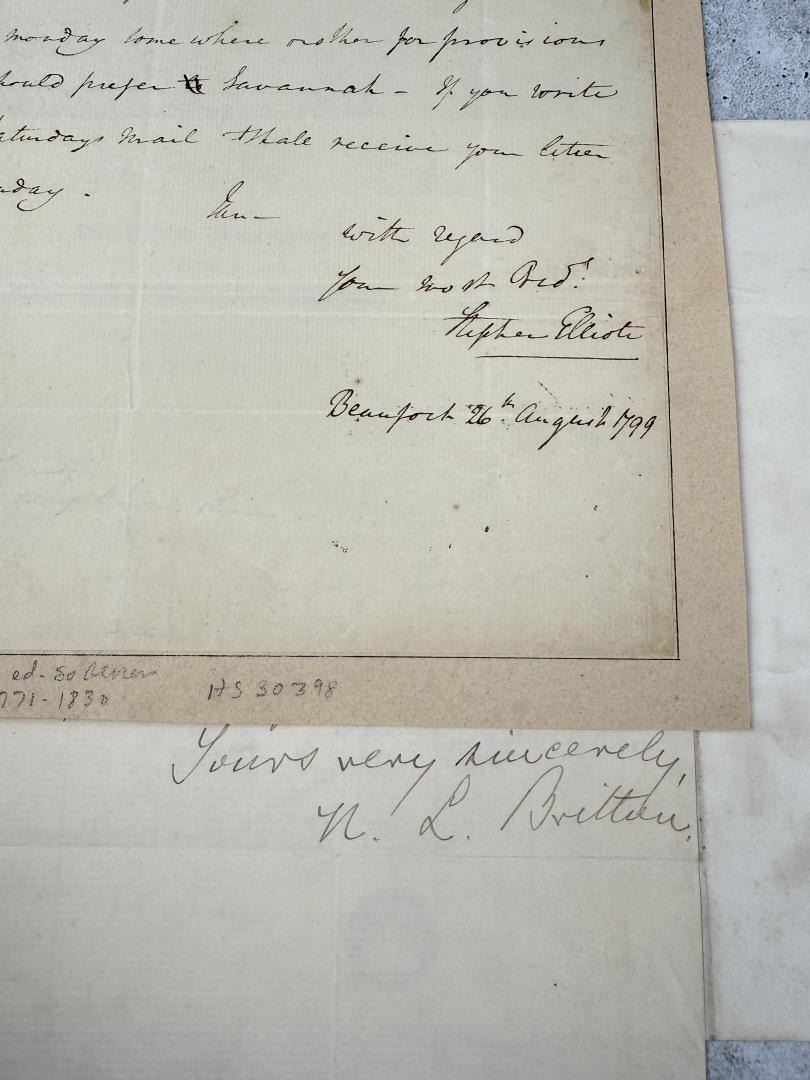 monday some where or other for provisions
should prefer Savannah - If you write
Saturdays mail I shall receive your letter
day.
with regard
your most Obed.t
Stephen Elliott
Beaufort 26th August 1799
ed. So
1771-1830 HS 30398
Yours very sincerely,
N. L. Britton.